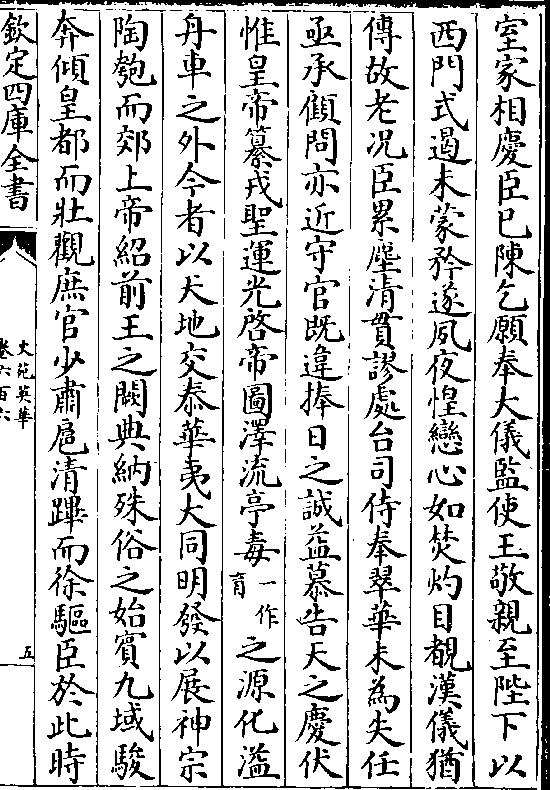 室家相慶臣已陳乞願奉大儀監使王敬親至陛下以
西門式遏未蒙矜遂夙夜惶戀心如焚灼目覩漢儀猶
傳故老况臣累塵清貫謬處台司侍奉翠華未為失任
亟承顧問亦近守官既違捧日之誠益慕告天之慶伏
惟皇帝纂戎聖運光啓帝圖澤流亭毒一作育之源化溢
舟車之外今者以天地交泰華夷大同明發以展神宗
陶匏而郊上帝紹前王之闕典納殊俗之始賓九域駿
奔傾皇都而壯觀庶官少肅扈清蹕而徐驅臣於此時
欽定四庫全書
文苑英華
卷六百六
五